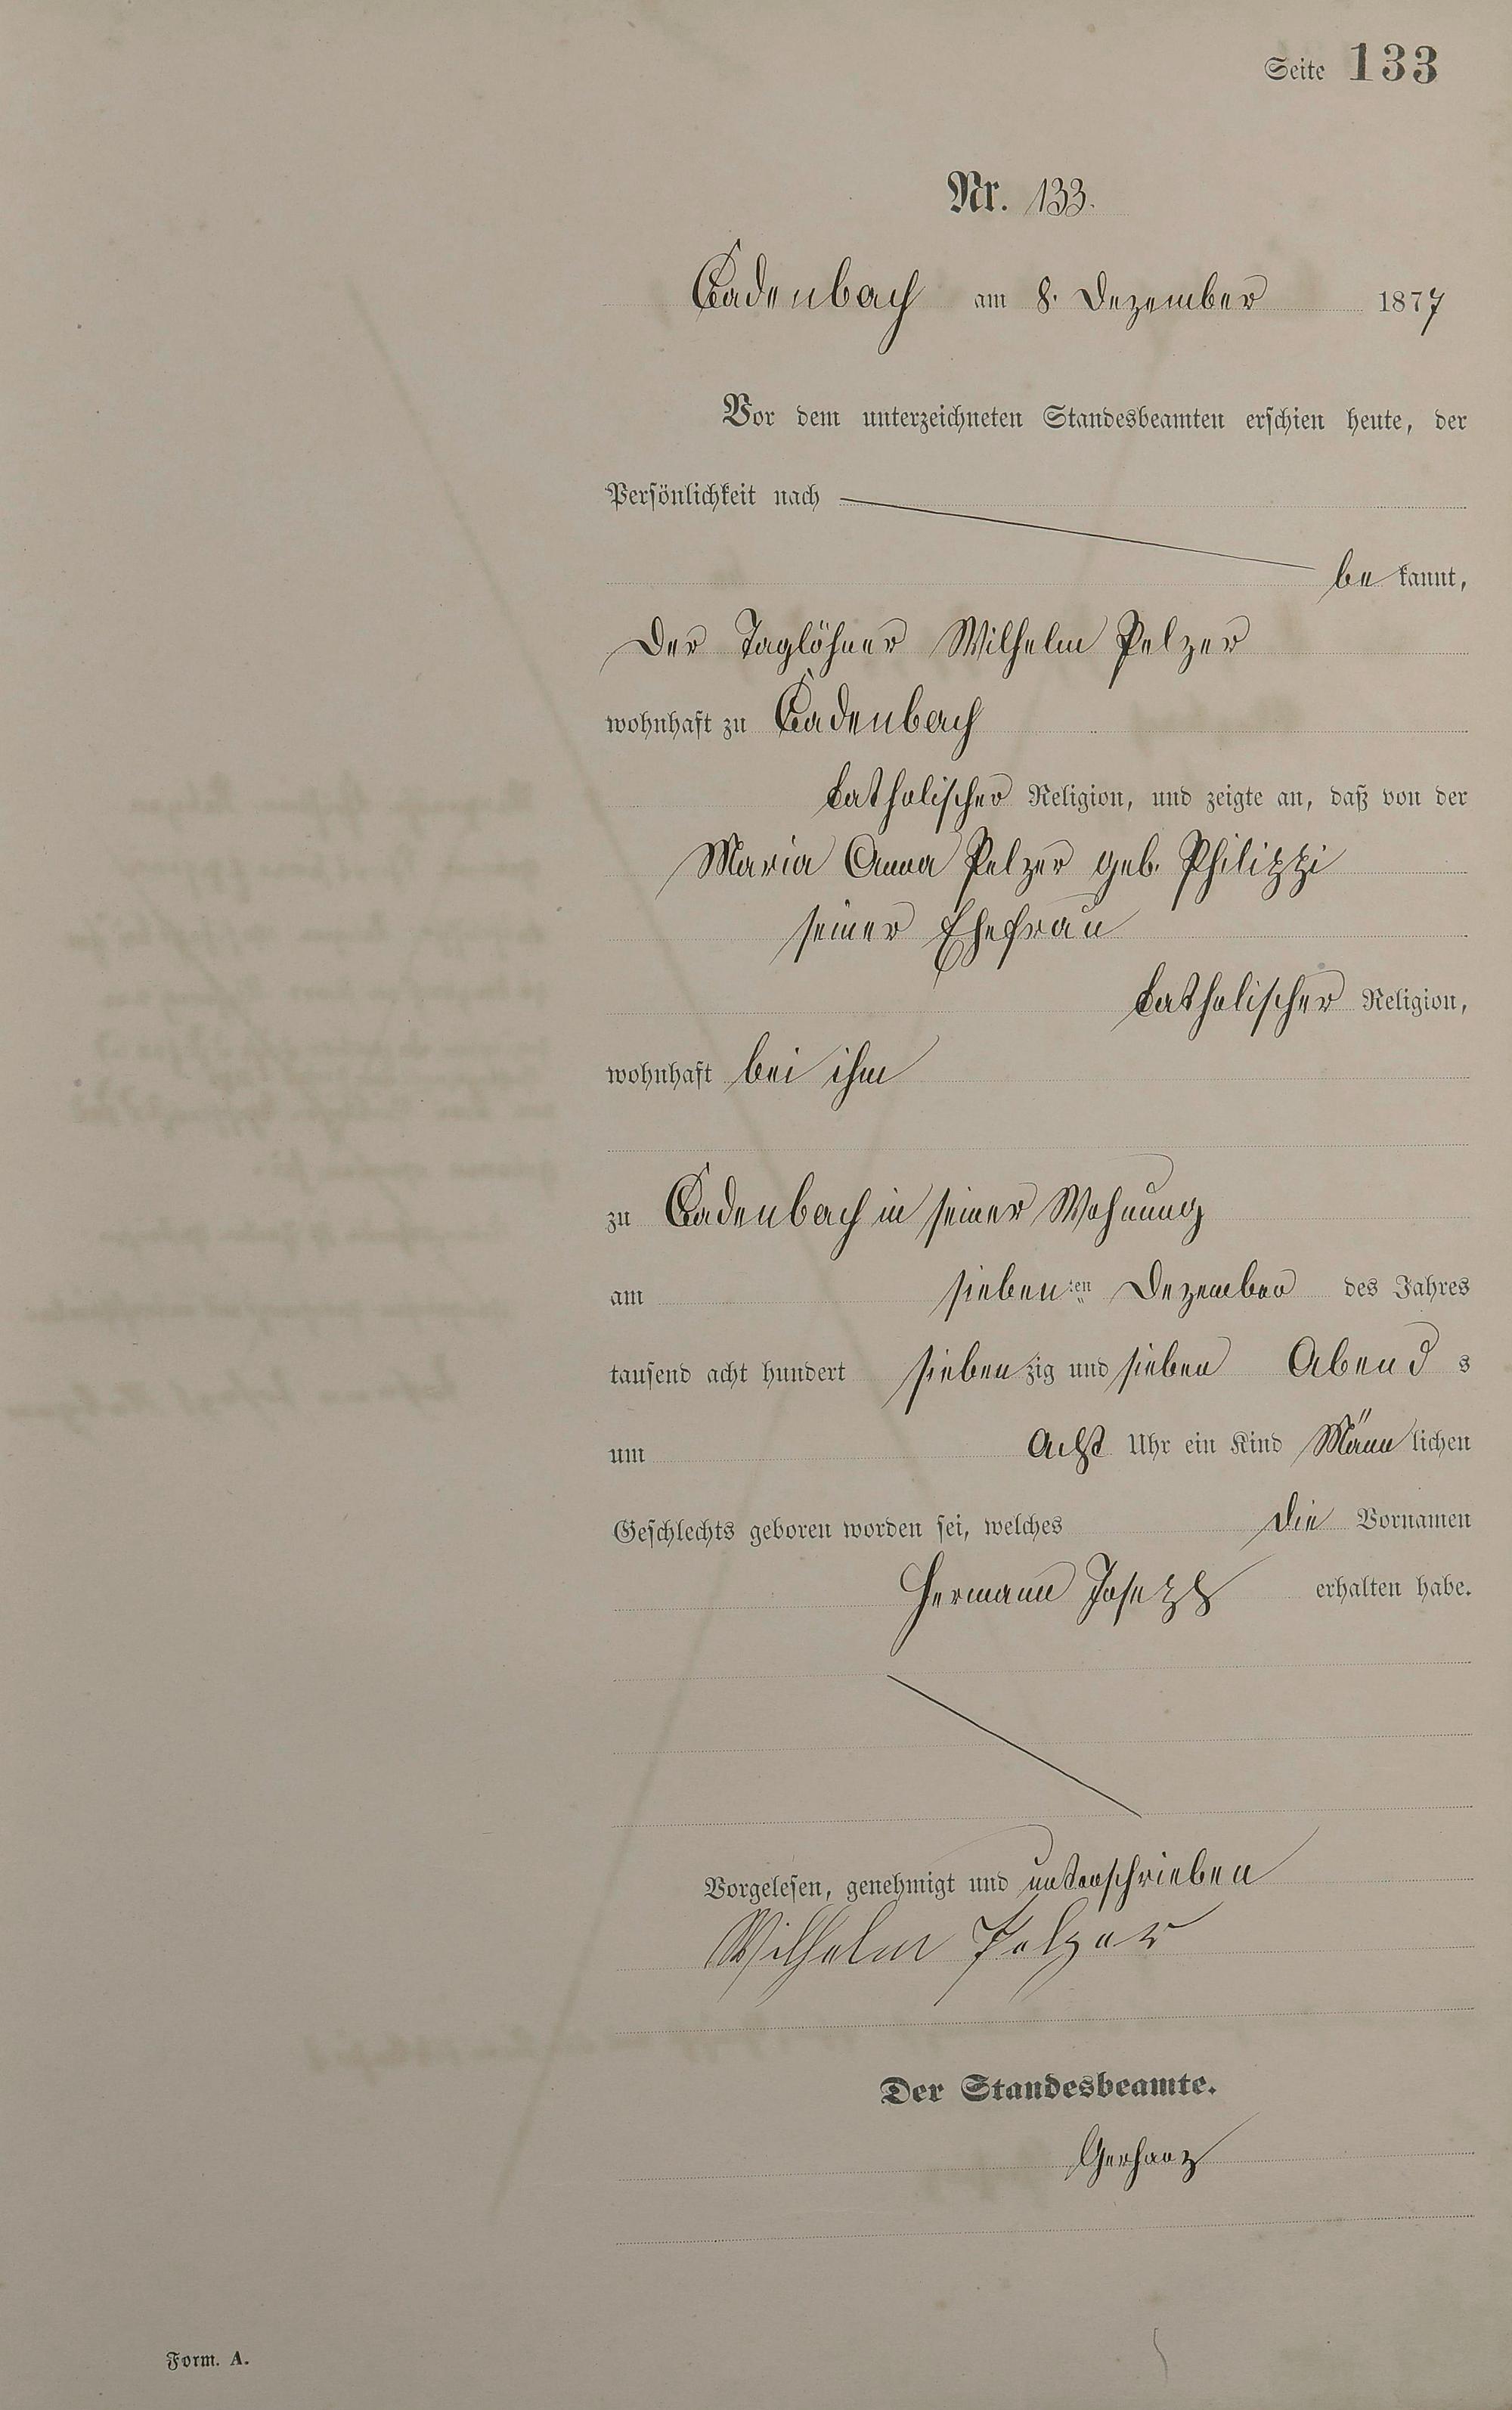 Seite 133
Nr. 133.
Cadenbach am 8. Dezember 1877
Vor dem unterzeichneten Standesbeamten erschien heute, der
Persönlichkeit nach
be kannt,
Der Taglöhner Wilhelm Pelzer
wohnhaft zu Cadenbach
katholischer Religion, und zeigte an, daß von der
Maria Anna Pelzer geb. Philippi
seiner Ehefrau
katholischer Religion,
wohnhaft bei ihm
zu Cadenbach in seiner Wohnung
am siebenten Dezember des Jahres
tausend acht hundert siebenzig und sieben Abend s
um Acht Uhr ein Kind Männ lichen
Geschlechts geboren worden sei, welches die Vornamen
Hermann Joseph erhalten habe.
Vorgelesen, genehmigt und unterschrieben
Wilhelm Pelzer
Der Standesbeamte.
Gerharz
Form. A.